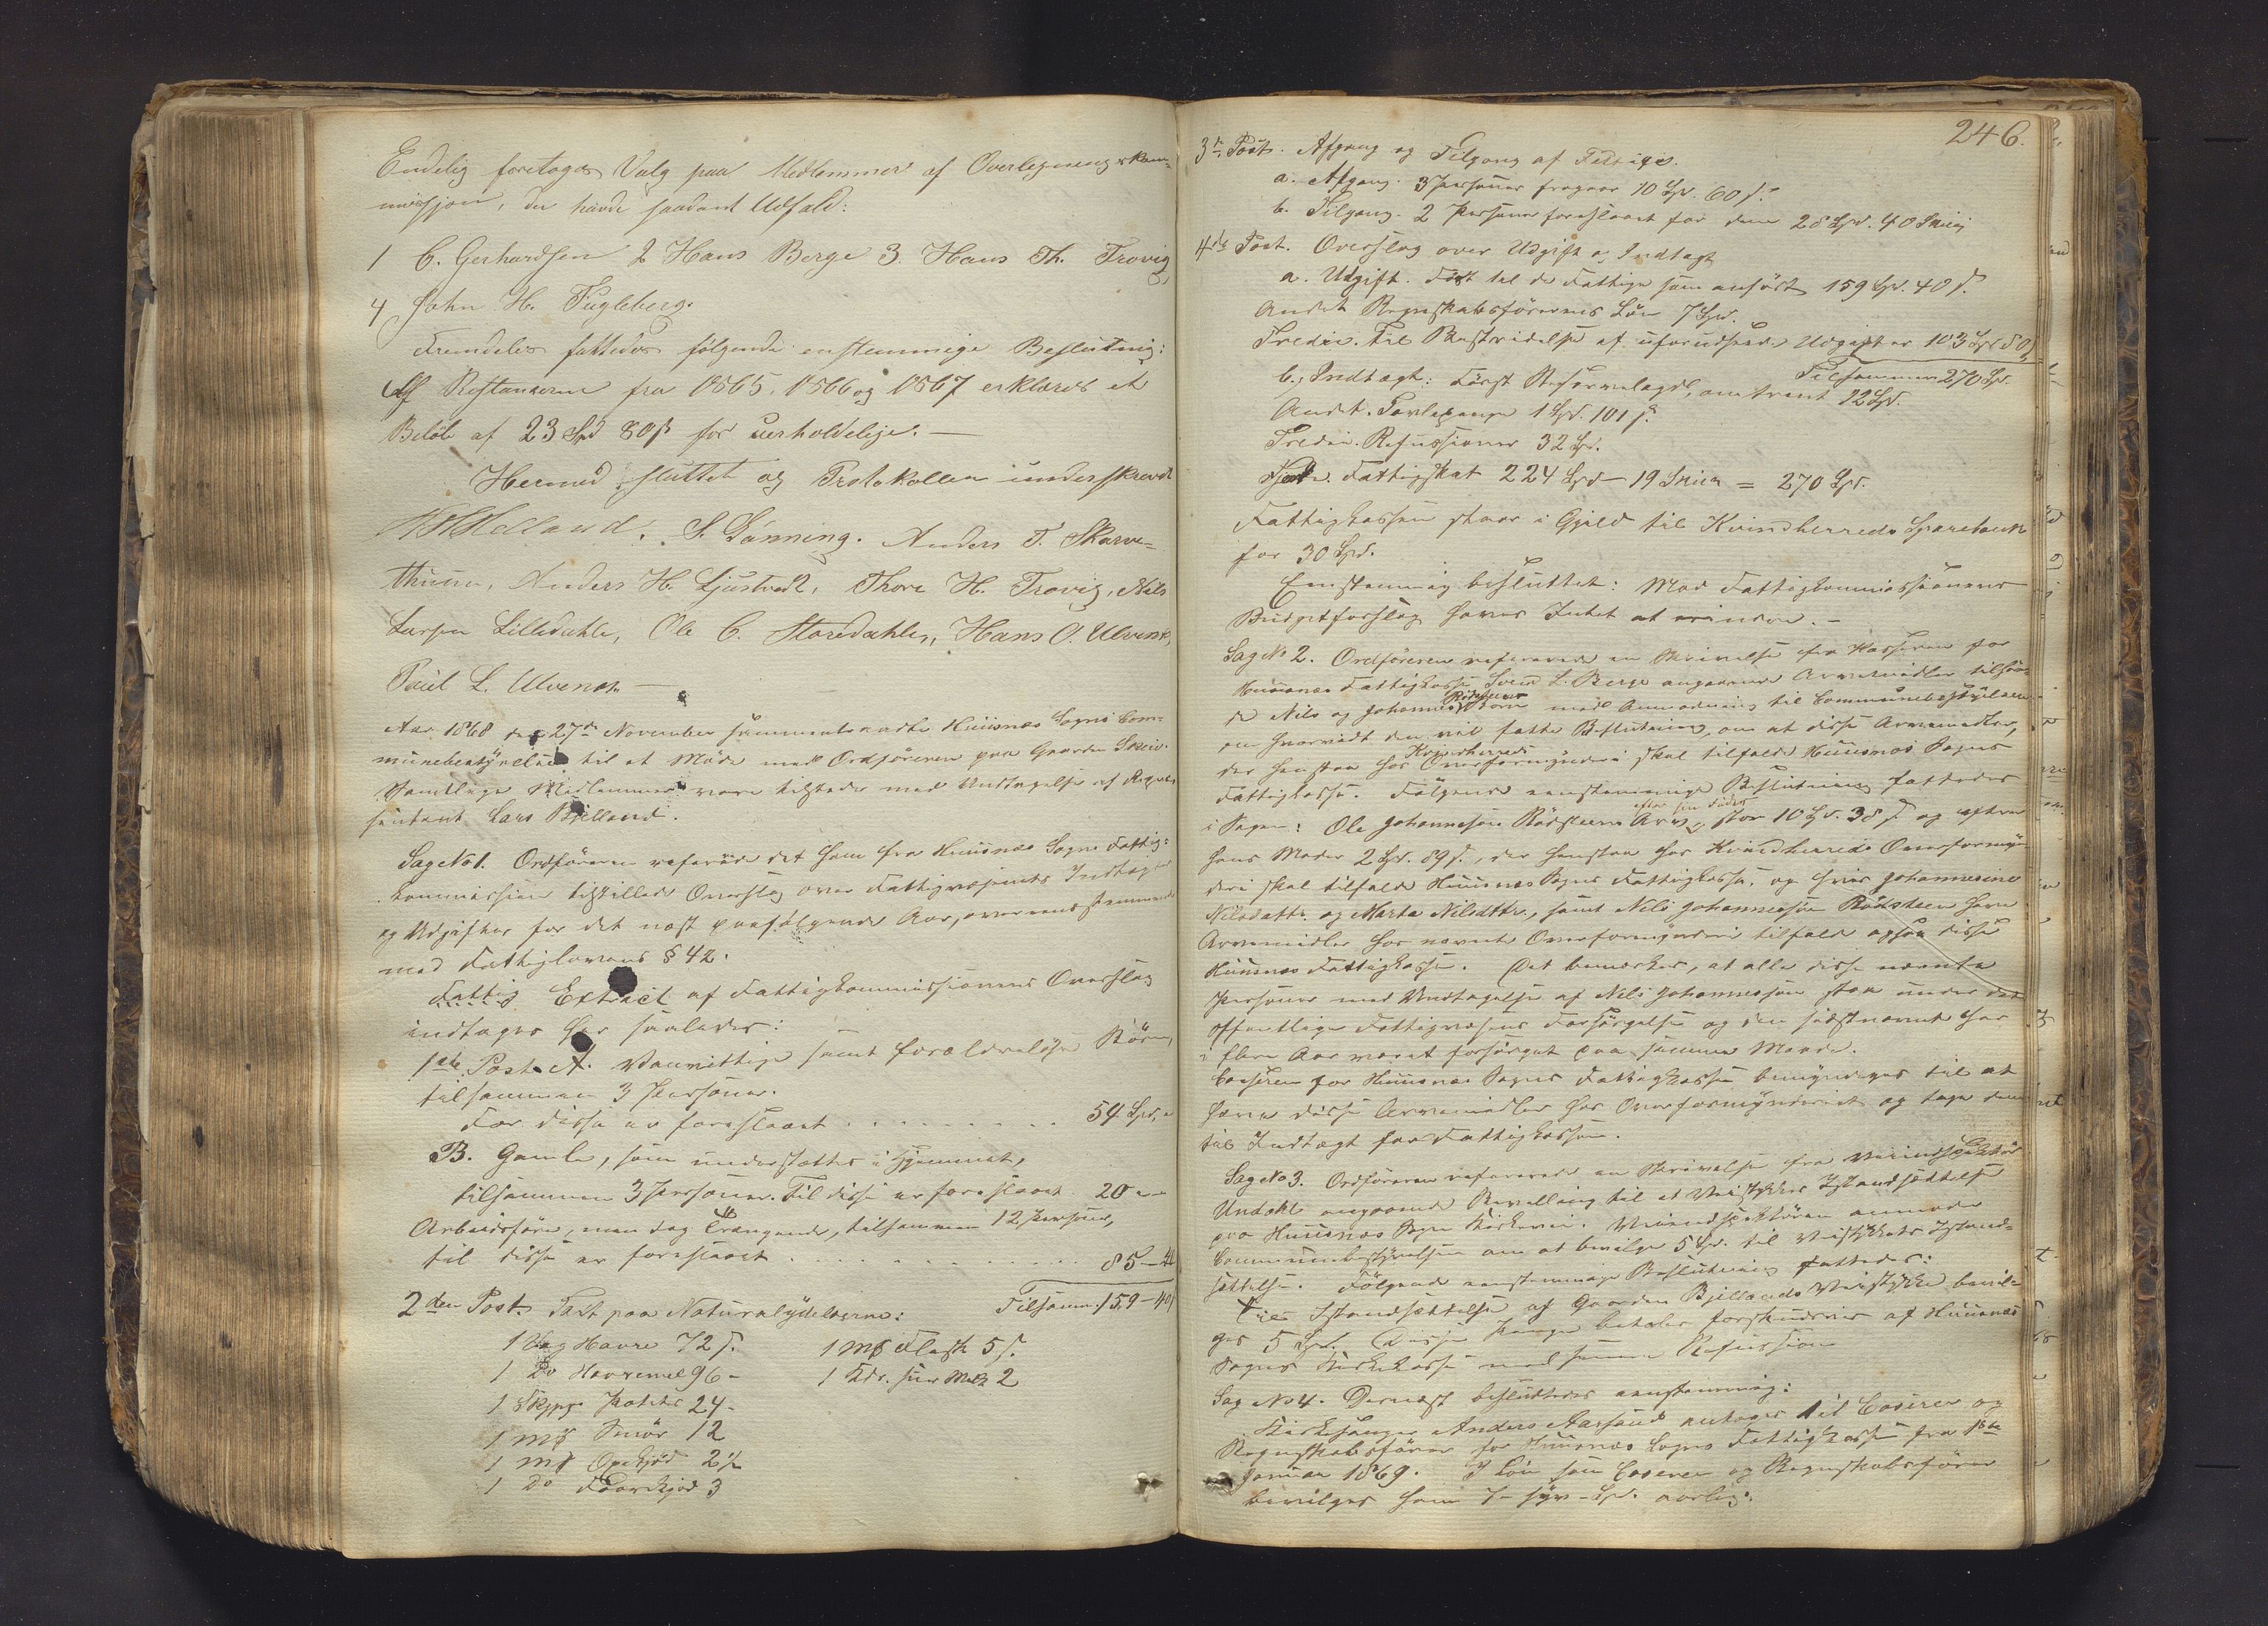 Endelig foretoges Valg paa Medlemmer af Overlignings kom-
missjon, der havde saadant Udfald:
1 C. Gerhardsen 2 Hans Berge 3. Hans Th. Trovig
4 John H. Fugleberg.
Fremdeles fattedes følgende enstemmige Beslutning:
Af Restancerne fra 1865, 1866 og 1867 erklæres et
Beløb af 23 Spd 80 ß for uerholdelige. —
Hermed sluttet og Protokollen underskrevet
Helland. S. Lønning. Anders T. Skarve-
thuun, Anders H. Ljustvedt, Thore H. Trovig, Nils
Larsen Lilledahle, Ole C. Storedahle, Hans O. Ulvenæs,
Paul L. Ulvenæs. —
Aar 1868 den 27de November sammentraadte Huusnæs Sogns Com-
munebestyrelse til et Møde med Ordføreren paa Gaarden
Samtlige Medlemmer vare tilstede med Undtagelse af Repræ-
sentant Lars Bjelland.
Sag No 1. Ordføreren refererede det ham fra Huusnæs Sogns Fattig-
kommission tilstillede Overslag over Fattigvæsenets Indtægter
og Udgifter for det næst paafølgende Aar, overeensstemmende
med Fattiglovens § 42.
Fattig Extract af Fattigkommissionens Overslag
indtages her saaledes:
1ste Post. A. Vanvittige samt forældreløse Børn,
tilsammen 3 Personer.
For disse er foreslaaet . . . . . . . . . 54 Spd. "
B. Gamle, som understøttes i Hjemmet,
tilsammen 3 Personer. Til disse er foreslaaet 20 - -
Arbeidsføre, men dog Trængende, tilsammen 12 Personer,
til disse er foreslaaet . . . . . . . . . . . 85 - 40
2den Post. Taxt paa Naturalydelserne: Tilsamm. 159 - 40
1 Vog Havre 72 ß. 1 Mß Flesk 5 ß.
1 Do Havremel 96 - 1 Kde. suur Melk 2
1 Skjpp. Poteter 24 -
1 Mß Smør 12
1 Mß Oxekjød 2½
1 Do Faarekjød 3
246.
3de Post. Afgang og Tilgang af Fattige.
a. Afgang. 3 Personer fragaar 10 Spd. 60 ß.
b. Tilgang. 2 Personer foreslaaet for dem 28 Spd. 40 Skill
4de Post. Overslag over Udgift og Indtægt
a. Udgift. Først til de Fattige som anført 159 Spd. 40 ß.
Andet Regnskabsførerens Løn 7 Spd.
Tredie. Til Bestridelse af uforudseede Udgifter 103 Spd 80
Tilsammen 270 Spd.
b., Indtægt: Først omtrent 12 Spd.
Andet. 1 Spd. 101 ß.
Tredie. Refusioner 32 Spd.
Fjerde. Fattigskat 224 Spd - 19 Skill = 270 Spd.
Fattigkassen staar i Gjæld til Kvindherreds Sparebank
for 30 Spd.
Eenstemmig besluttet: Mod Fattigkommissionens
Budgetforslag haves Intet at erindre. -
Sag No 2. Ordføreren refererede en Skrivelse fra Kassereren for
Huusnæs Fattigkasse Svend L. Berge angaaende Arvemidler tilhøren-
de Nils og Johannes Rødsteens Børn med Anmodning til Communebestyrelsen
om hvorvidt den vil fatte Beslutning om at disse Arvemidler,
der henstaa hos Kvindherreds Overformynderi skal tilfalde Huusnæs Sogns
Fattigkasse. Følgende eenstemmige Beslutning fattedes
i Sagen: Ole Johannesøn Rødsteens Arv efter sin Fader stor 10 Spd. 38 ß. og efter
hans Moder 2 Spd. 89 ß., der henstaa hos Kvindherreds Overformyn-
deri skal tilfalde Huusnæs Sogns Fattigkasse, og hvis Johannesine
Nilsdattr. og Marta Nilsdttr., samt Nils Johannessøn Rødsteen have
Arvemidler hos nævnte Overformynderi tilfalde ogsaa disse
Huusnæs Fattigkasse. Det bemærkes, at alle disse nævnte
Personer med Undtagelse af Nils Johannessøn staa under det
offentlige Fattigvæsens Forsørgelse og den sidstnævnte har
i flere Aar været forsørget paa samme Maade.
Casseren for Huusnæs Sogns Fattigkasse bemyndiges til at
hæve disse Arvemidler hos Overformynderiet og tage dem
til Indtægt for Fattigkassen.
Sag No 3. Ordføreren refererede en Skrivelse fra Veiinspektør
Undahl angaaende Bevilling til et Veistykkes Istandsættelse
paa Huusnæs Sogns Kirkevei. Veiinspektøren anmoder
Communebestyrelsen om at bevilge 5 Spd. til Veistykkets Istand-
sættelse. Følgende eenstemmige Beslutning fattedes:
Til Istandsættelse af Gaarden Bjellands Veistykke bevil-
ges 5 Spd. Disse Penge betales forskudsviis af Huusnæs
Sogns Kirkekasse mod senere Refusion
Sag No 4. Dernæst besluttedes eenstemmig:
Kirkesanger Anders Aarsand antages til Casserer og
Regnskabsfører for Huusnæs Sogns Fattigkasse fra 1ste
Januar 1869. I Løn som Casserer og Regnskabsfører
bevilges ham 7 - syv - Spd. aarlig.